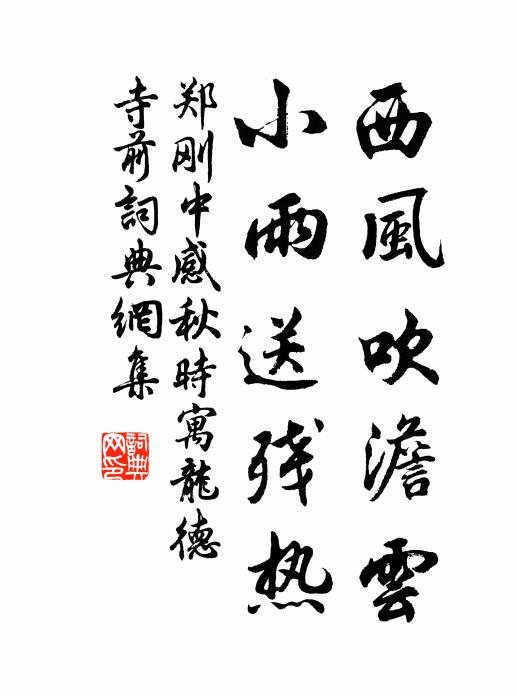 西風吹澹雲
小雨送残热
郑刚中感秋時寓龍德
寺前詞典網集
詞典网印